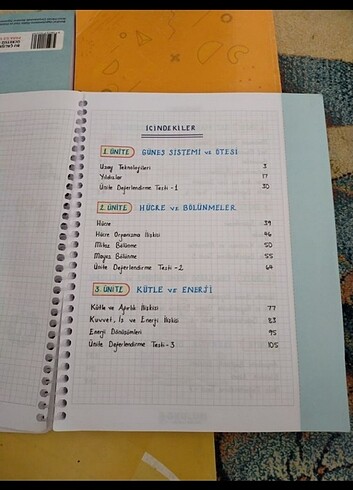 İÇİNDEKİLER
1. ÜNİTE GÜNEŞ SİSTEMİ ve ÖTESİ
Uzay Teknolojileri 3
Yıldızlar 17
Ünite Değerlendirme Testi - 1 30
2. ÜNİTE HÜCRE ve BÖLÜNMELER
Hücre 39
Hücre Organizma İlişkisi 46
Mitoz Bölünme 50
Mayoz Bölünme 55
Ünite Değerlendirme Testi - 2 64
3. ÜNİTE KÜTLE ve ENERJİ
Kütle ve Ağırlık İlişkisi 77
Kuvvet, İş ve Enerji İlişkisi 83
Enerji Dönüşümleri 95
Ünite Değerlendirme Testi - 3 105